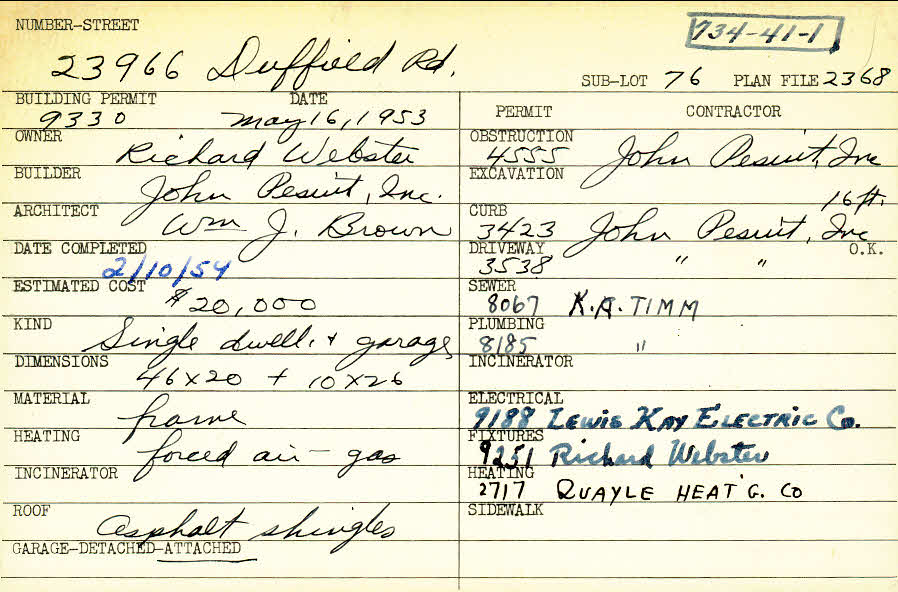 NUMBER-STREET
734-41-1
23966 Duffield Rd.
SUB-LOT 76 PLAN FILE 2368
BUILDING PERMIT DATE
9330 May 16, 1953
OWNER
Richard Webster
BUILDER
John Pesuit, Inc.
ARCHITECT
Wm J. Brown
DATE COMPLETED
2/10/54
ESTIMATED COST
$20,000
KIND
Single dwell. + garage
DIMENSIONS
46x20 + 10x26
MATERIAL
frame
HEATING
forced air - gas
INCINERATOR
ROOF
asphalt shingles
GARAGE-DETACHED-ATTACHED
PERMIT CONTRACTOR
OBSTRUCTION
4555 John Pesuit, Inc
EXCAVATION
16 ft.
CURB
3423 John Pesuit, Inc
DRIVEWAY O.K.
3538 " "
SEWER
8067 K.A. TIMM
PLUMBING
8185 "
INCINERATOR
ELECTRICAL
9188 LEWIS KAY ELECTRIC Co.
FIXTURES
9251 Richard Webster
HEATING
2717 QUAYLE HEAT'G. CO
SIDEWALK